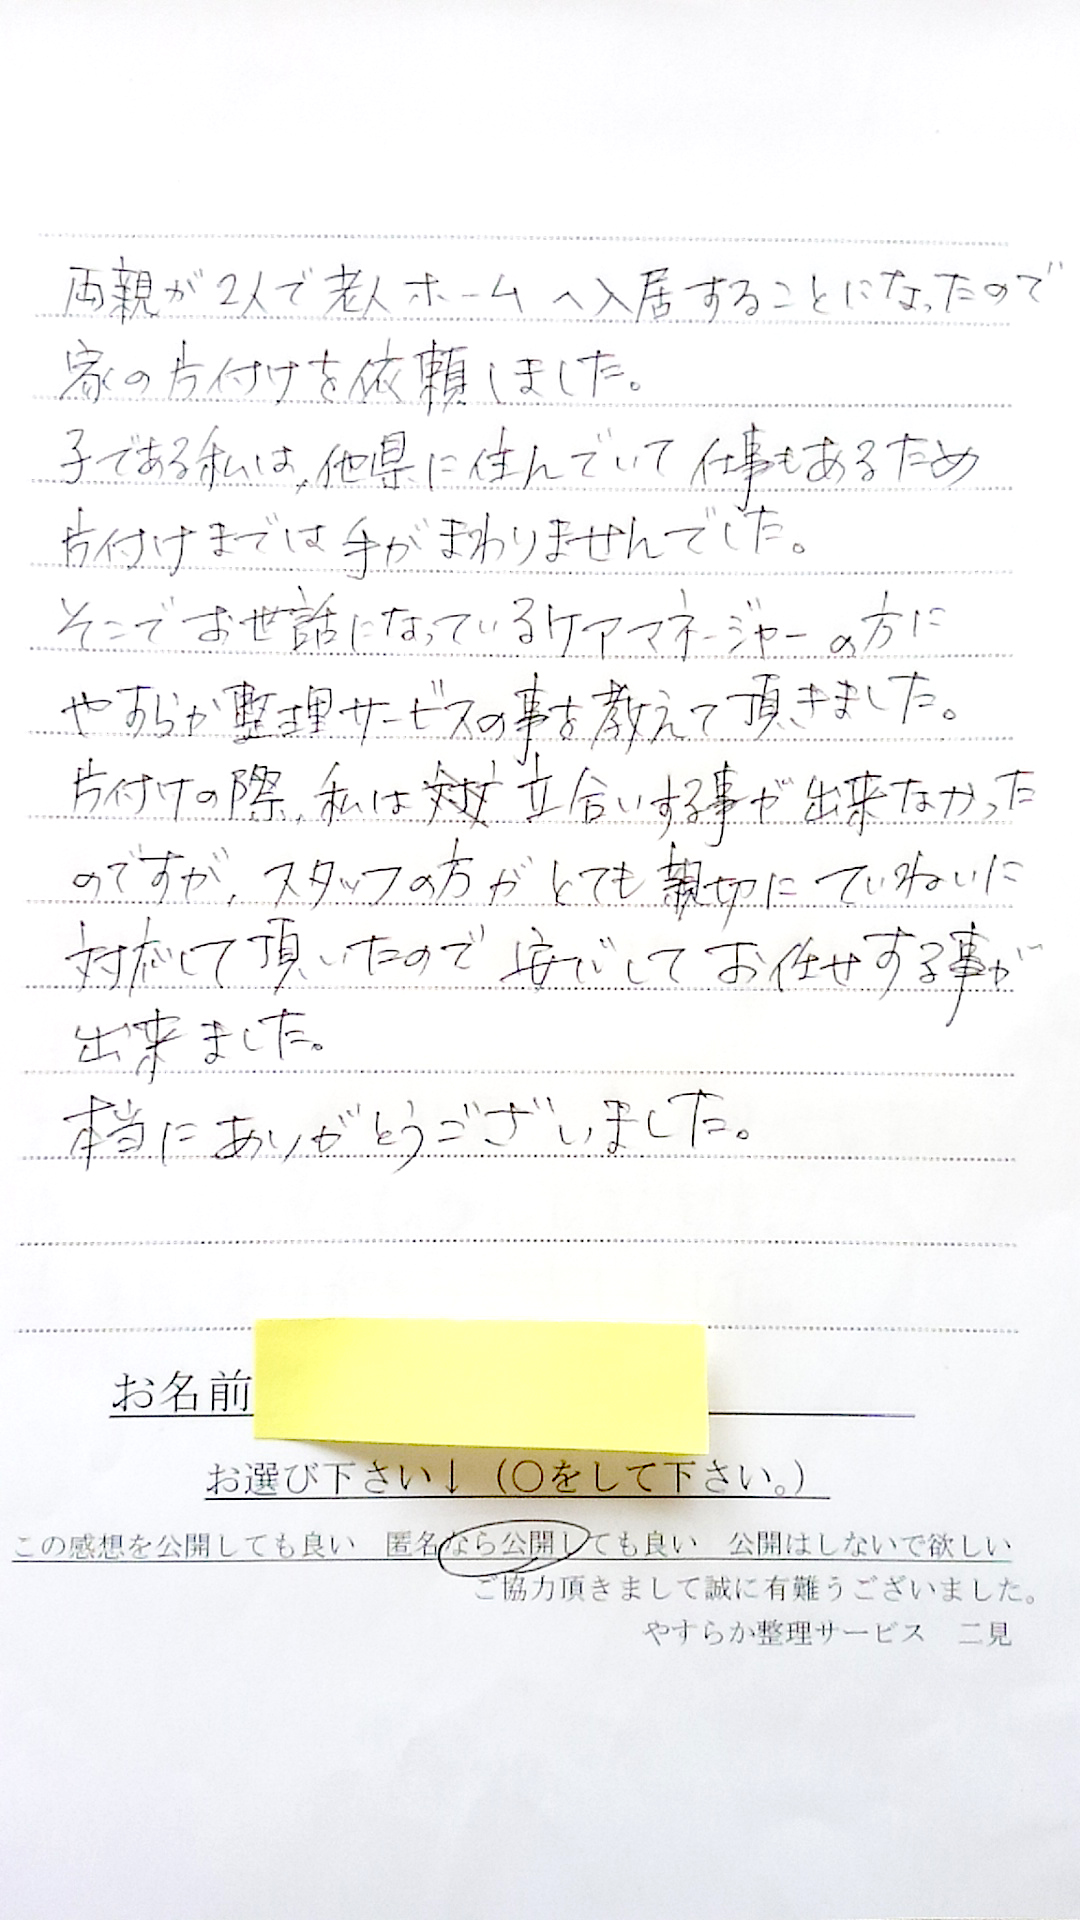 両親が2人で老人ホームへ入居することになったので
家の片付けを依頼しました。
子である私は、他県に住んでいて仕事もあるため
片付けまでは手がまわりませんでした。
そこでお世話になっているケアマネージャーの方に
やすらか整理サービスの事を教えて頂きました。
片付けの際、私は立合いする事が出来なかった
のですが、スタッフの方がとても親切にていねいに
対応して頂いたので安心してお任せする事が
出来ました。
本当にありがとうございました。
お名前
お選び下さい↓（○をして下さい。）
この感想を公開しても良い　匿名なら公開しても良い　公開はしないで欲しい
ご協力頂きまして誠に有難うございました。
やすらか整理サービス　二見